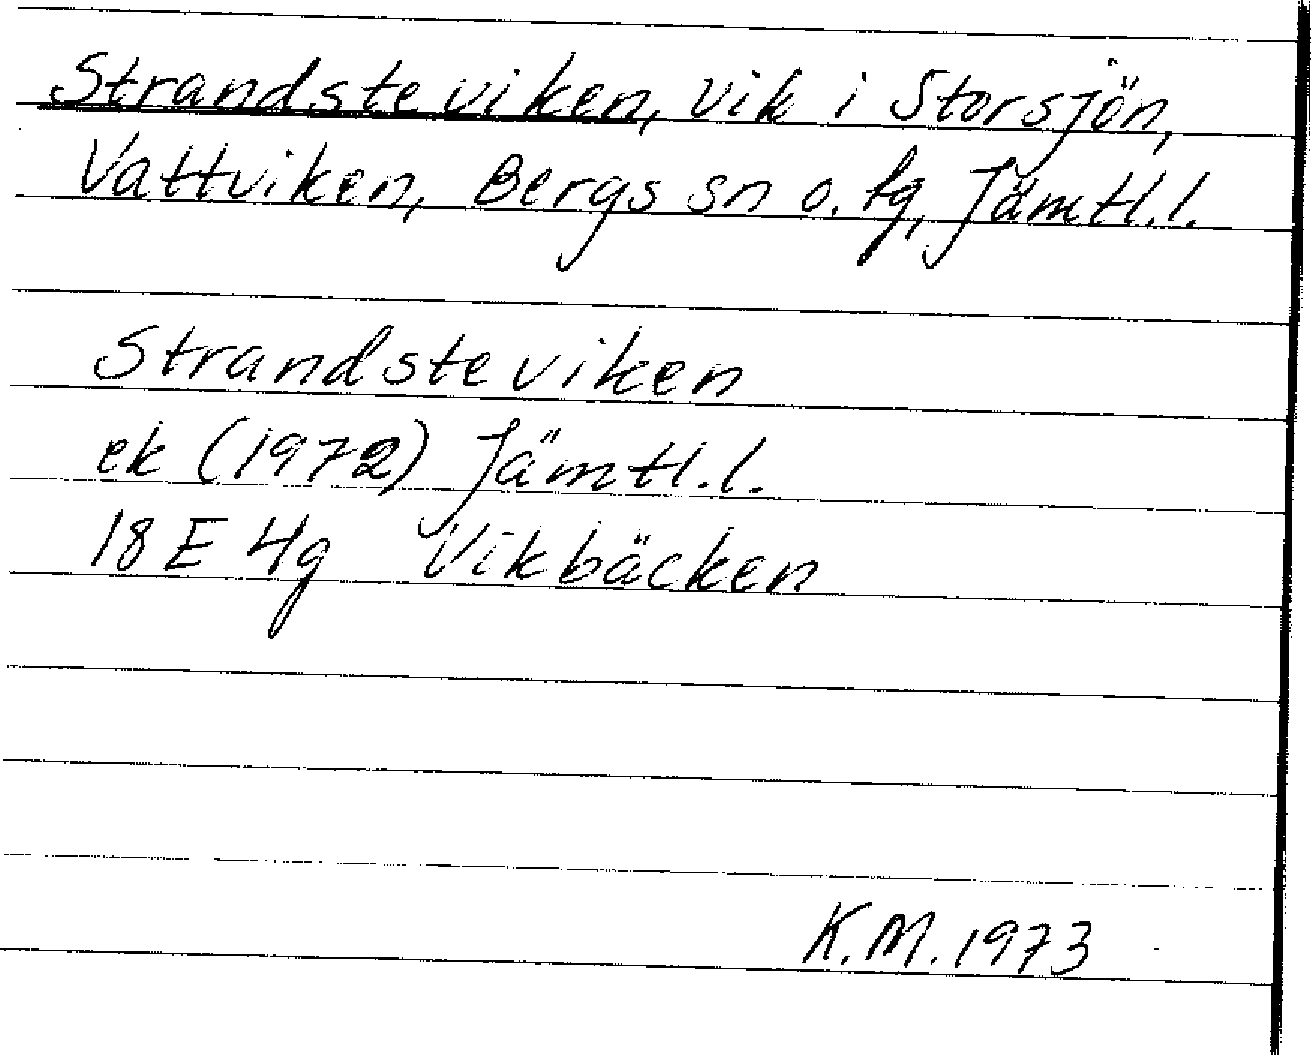 Strandsteviken, vik i Storsjön,
Vattviken, Bergs sn o. tg, Jämtl.l.
Strandsteviken
ek (1972) Jämtl.l.
18 E 4g Vikbäcken
K.M. 1973